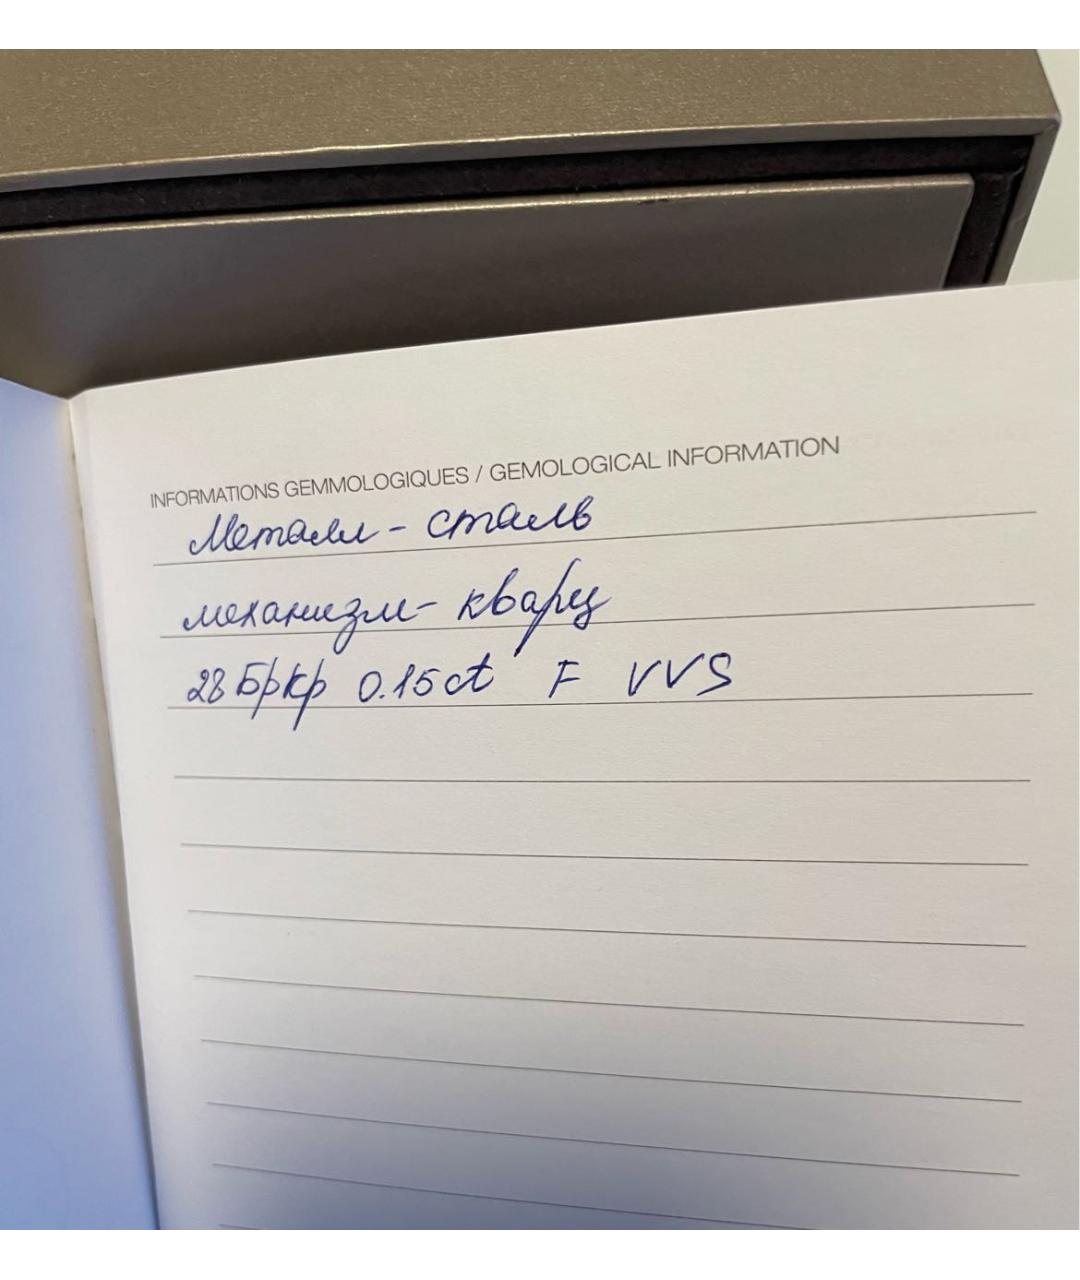 INFORMATIONS GEMMOLOGIQUES / GEMOLOGICAL INFORMATION
Металл - сталь
механизм - кварц
28 Бркр 0.15 ct F VVS